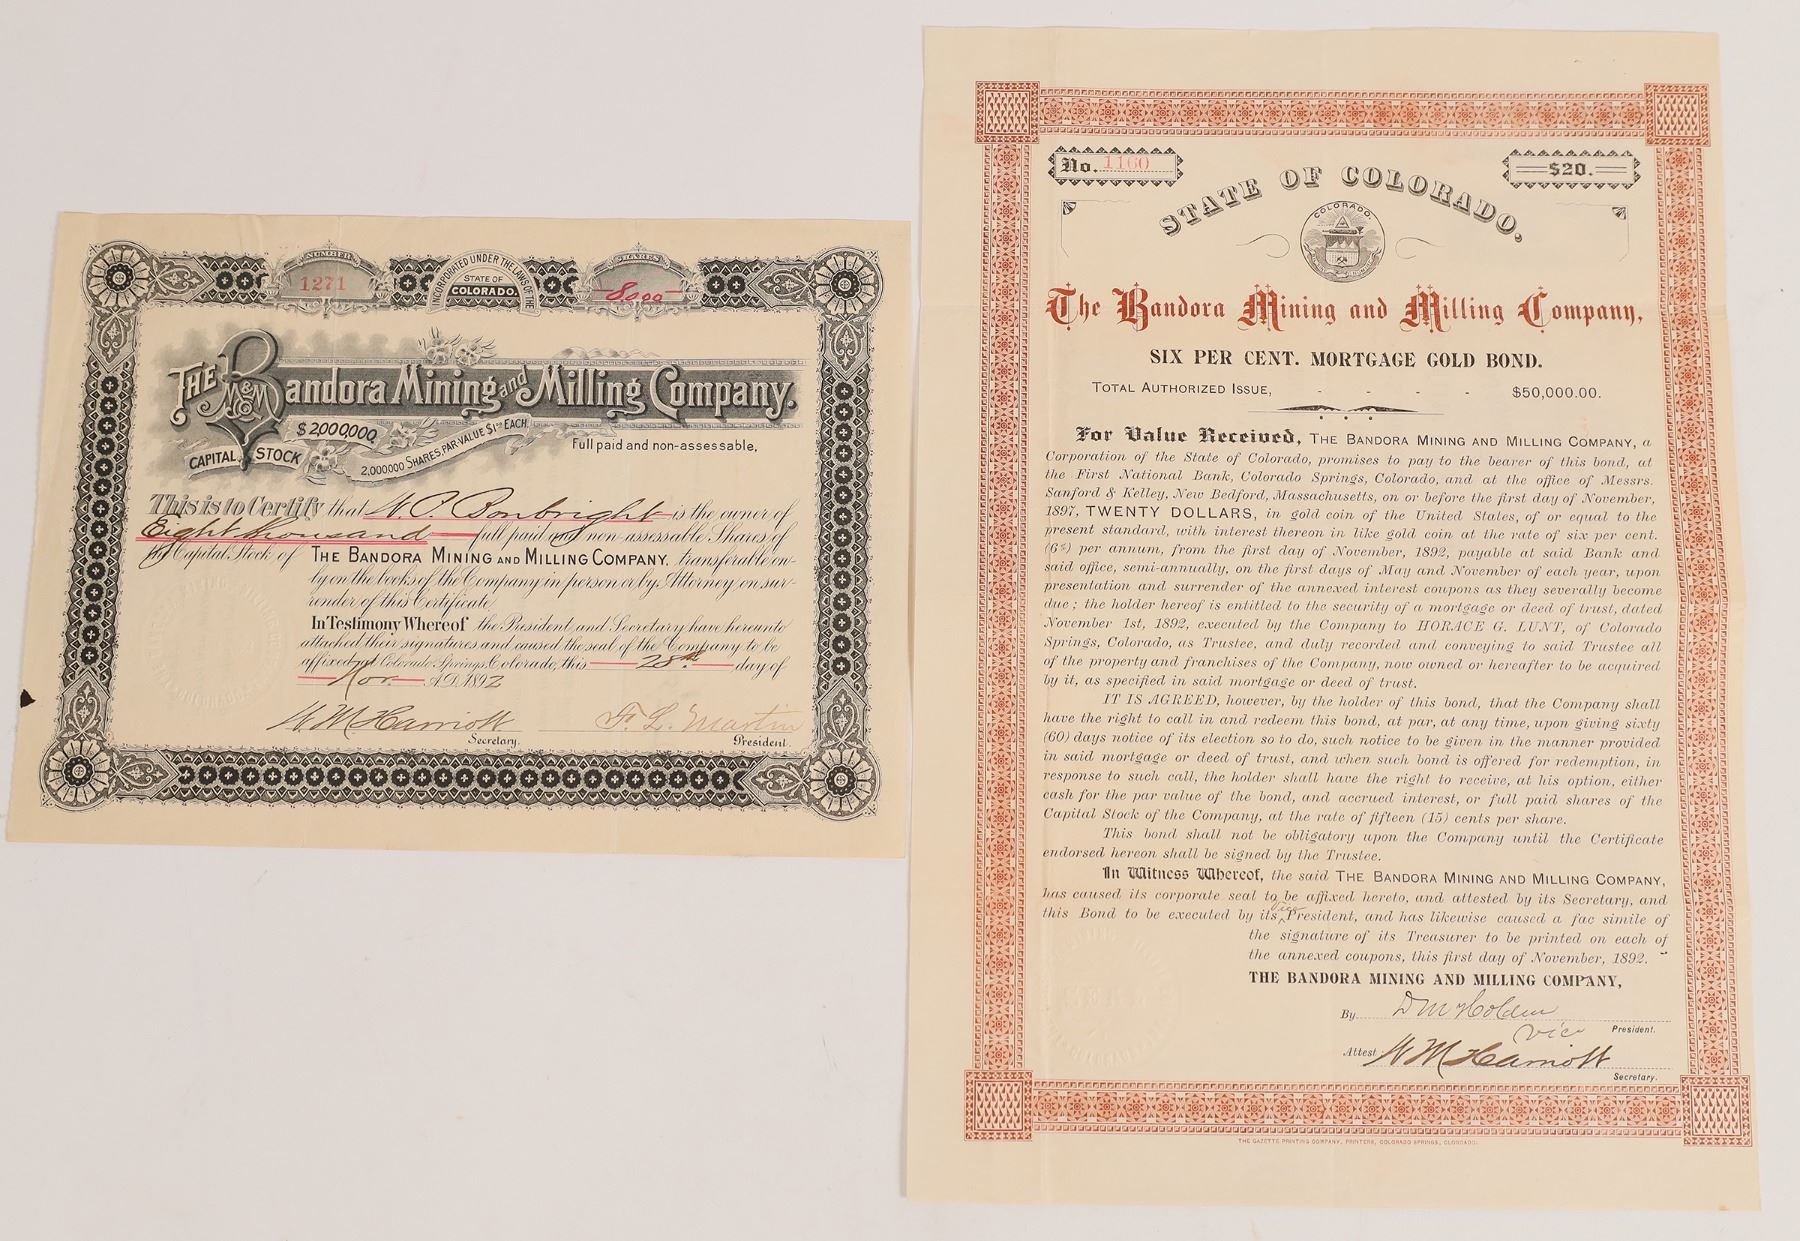 NUMBER
1271
INCORPORATED UNDER THE LAWS OF THE
STATE OF
COLORADO.
SHARES
8000
THE Bandora Mining and Milling Company.
M&M Co
$2,000,000
CAPITAL STOCK
2,000000 SHARES, PAR VALUE $1.00 EACH.
Full paid and non-assessable,
This is to Certify that W. P. Bonbright is the owner of
Eight thousand full paid and non-assessable Shares of
the Capital Stock of THE BANDORA MINING AND MILLING COMPANY, transferable on-
ly on the books of the Company in person or by Attorney on sur-
render of this Certificate
In Testimony Whereof the President and Secretary have hereunto
attached their signatures and caused the seal of the Company to be
affixed at Colorado Springs, Colorado, this 28th day of
Nov. A.D. 1892
W M Harriott
Secretary.
F. L. Martin
President.
No. 1160
$20.
STATE OF COLORADO.
COLORADO.
The Bandora Mining and Milling Company,
SIX PER CENT. MORTGAGE GOLD BOND.
TOTAL AUTHORIZED ISSUE, - - - - $50,000.00.
For Value Received, THE BANDORA MINING AND MILLING COMPANY, a
Corporation of the State of Colorado, promises to pay to the bearer of this bond, at
the First National Bank, Colorado Springs, Colorado, and at the office of Messrs.
Sanford & Kelley, New Bedford, Massachusetts, on or before the first day of November,
1897, TWENTY DOLLARS, in gold coin of the United States, of or equal to the
present standard, with interest thereon in like gold coin at the rate of six per cent.
(6%) per annum, from the first day of November, 1892, payable at said Bank and
said office, semi-annually, on the first days of May and November of each year, upon
presentation and surrender of the annexed interest coupons as they severally become
due; the holder hereof is entitled to the security of a mortgage or deed of trust, dated
November 1st, 1892, executed by the Company to HORACE G. LUNT, of Colorado
Springs, Colorado, as Trustee, and duly recorded and conveying to said Trustee all
of the property and franchises of the Company, now owned or hereafter to be acquired
by it, as specified in said mortgage or deed of trust.
IT IS AGREED, however, by the holder of this bond, that the Company shall
have the right to call in and redeem this bond, at par, at any time, upon giving sixty
(60) days notice of its election so to do, such notice to be given in the manner provided
in said mortgage or deed of trust, and when such bond is offered for redemption, in
response to such call, the holder shall have the right to receive, at his option, either
cash for the par value of the bond, and accrued interest, or full paid shares of the
Capital Stock of the Company, at the rate of fifteen (15) cents per share.
This bond shall not be obligatory upon the Company until the Certificate
endorsed hereon shall be signed by the Trustee.
In Witness Whereof, the said THE BANDORA MINING AND MILLING COMPANY,
has caused its corporate seal to be affixed hereto, and attested by its Secretary, and
this Bond to be executed by its Vice President, and has likewise caused a fac simile of
the signature of its Treasurer to be printed on each of
the annexed coupons, this first day of November, 1892.
THE BANDORA MINING AND MILLING COMPANY,
By D M Holden
Vice President.
Attest W M Harriott
Secretary.
THE GAZETTE PRINTING COMPANY, PRINTERS, COLORADO SPRINGS, COLORADO.